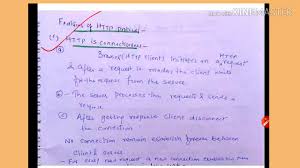 Made with KINEMASTER
Features of HTTP protocol-
(1) HTTP is connectionless-
Browser (HTTP client) initiates an HTTP request
& after a request is made, the client waits
for the response
The server processes the request & sends a
After getting response client disconnect
the connection
No connection remain establish forever between
client & server
new request a new connection